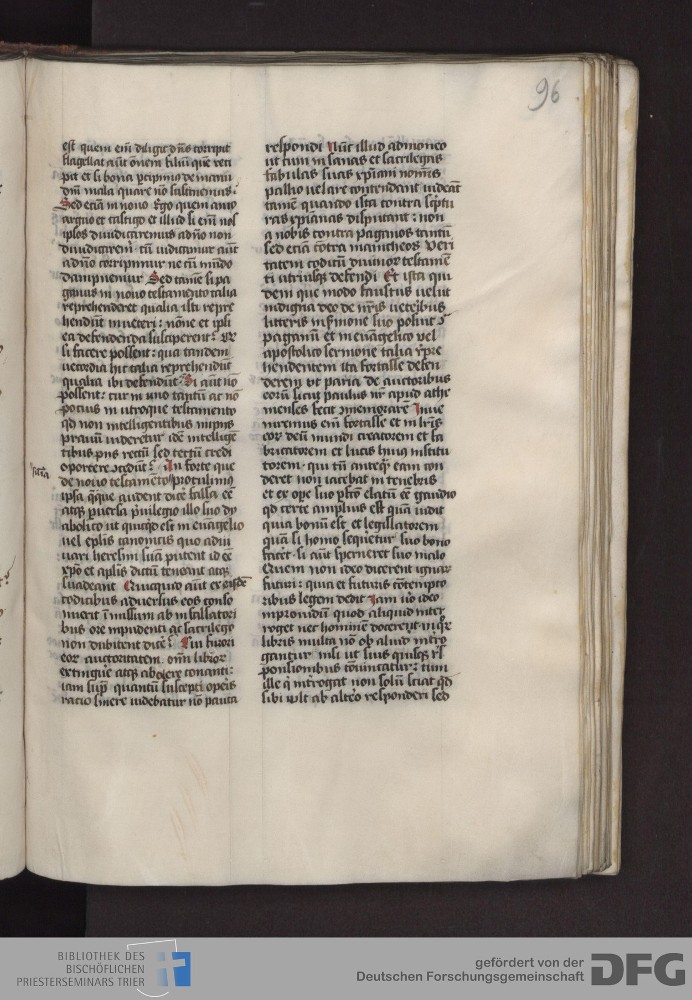 96
est quem em̄ diligit dn̄s corripit
flagellat aūt om̄em filiū que reci
pit et si bona ꝑcepimus de manu
dn̄i mala quare nō sustinemus
Sed etiā in nouo Ergo quem amo
arguo et castigo et illud si em̄ nos
ip̄os diiudicaremus a dn̄o non
diiudicarem̄ cū iudicamur aūt
a dn̄o corripimur ne cū mūdo
dampnemur Sed tamē si pa
ganus in nouo testamento talia
reprehenderet qualia isti repre
hendūt in veteri nōne et ipsi
ea defendenda susciperent
si facere possent qua tandem
uecordia hic talia reprehendūt
qualia ibi defendūt Si aūt nō
possent cur in uno tantū ac nō
potius in utroque testamento
qd non intelligentibus impiis
prauū uideretur ide intelligē
tibus piis rectū sed tectū credi
oportere ↄcedūt An forte que
de nouo testamēto protulimus
ipsa quoque audent dicē falsa eē
atque ꝑuersa pͥuilegio illo suo dy
abolico ut quicqd est in euāgelio
uel ep̄lis canonicis quo adiu
uari heresim suā putent id eē
a xp̄o et ap̄lis dictū teneant atque
suadeant Quicquid aūt ex eisdē
codicibus aduersus eos sonu
erit īmissum ab infalsatori
bus ore impudenti ac sacrilego
non dubitent dicē Cui furori
eor auctoritatem om̄i libror
extinguere atque abolere conanti
iam supra quantū suscepti operis
ratio sinere uidebatur nō pauca
respondi Nūc illud admoneo
ut cum insanas et sacrilegas
fabulas suas xp̄iani nomīs
pallio uelare contendant uideāt
tamē quando ista contra sc̄ptu
ras xp̄ianas disputant non
a nobis contra paganos tantū
sed etiā cōtra manicheos Veri
tatem codicū diuinor testamē
ti utriusque defendi Et ista qui
dem que modo faustus uelut
indigna deo de nr̄is ueteribus
litteris in sermone suo posuit
paganū et in euāgelico vel
apostolico sermone talia reprehe
hendentem ita fortasse defen
derem vt paria de auctoribus
eorū sicut paulus nr̄ apud athe
nienses fecit ↄmemorare Inue
niremus em̄ fortasse et in lr̄is
eor deū mundi creatorem et fa
bricatorem et lucis huius institu
torem qui tū anteq eam con
deret non iacebat in tenebris
et ex ope suo ꝑfcō elatū eē gaudio
qd certe amplius est quā uidit
quia bonū est et legislatorem
quā si homo sequeretur suo bono
faceret si aūt sperneret suo malo
Quem non ideo dicerent ignar
futuri quia et futuris cōtempto
ribus legem dedit Iam nō ideo
improuidū quod aliquid inter
roget nec hominē docerent in
libris multa nō ob aliud intro
gantur nisi ut suis quisque r
ponsionibus cōuincatur cum
ille q introgat non solū sciat qd
sibi uelit ab altero responderi sed
BIBLIOTHEK DES
BISCHÖFLICHEN
PRIESTERSEMINARS TRIER
gefördert von der
Deutschen Forschungsgemeinschaft
DFG